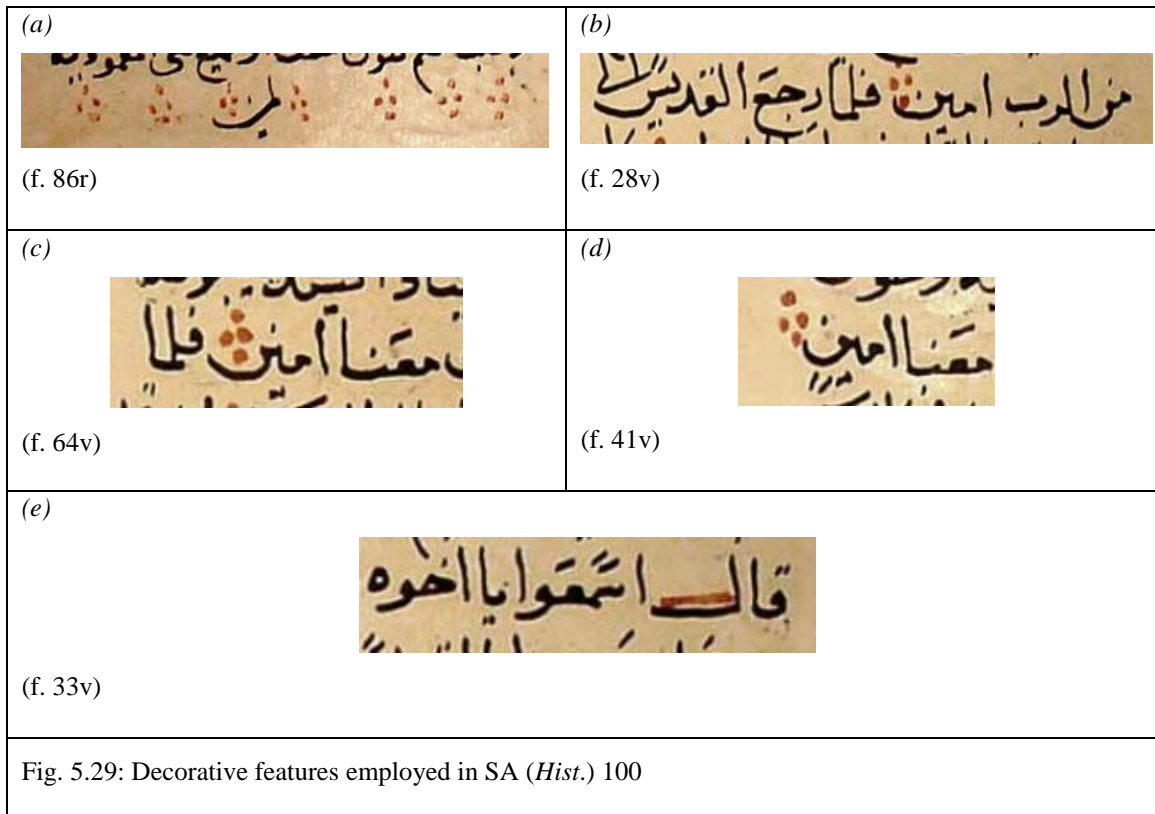 (a)
(f. 86r)
(b)
من الرب امين فلما رجع القديس الى
(f. 28v)
(c)
معنا امين فلما
(f. 64v)
(d)
معنا امين
(f. 41v)
(e)
قال اسمعوا يا اخوه
(f. 33v)
Fig. 5.29: Decorative features employed in SA (Hist.) 100